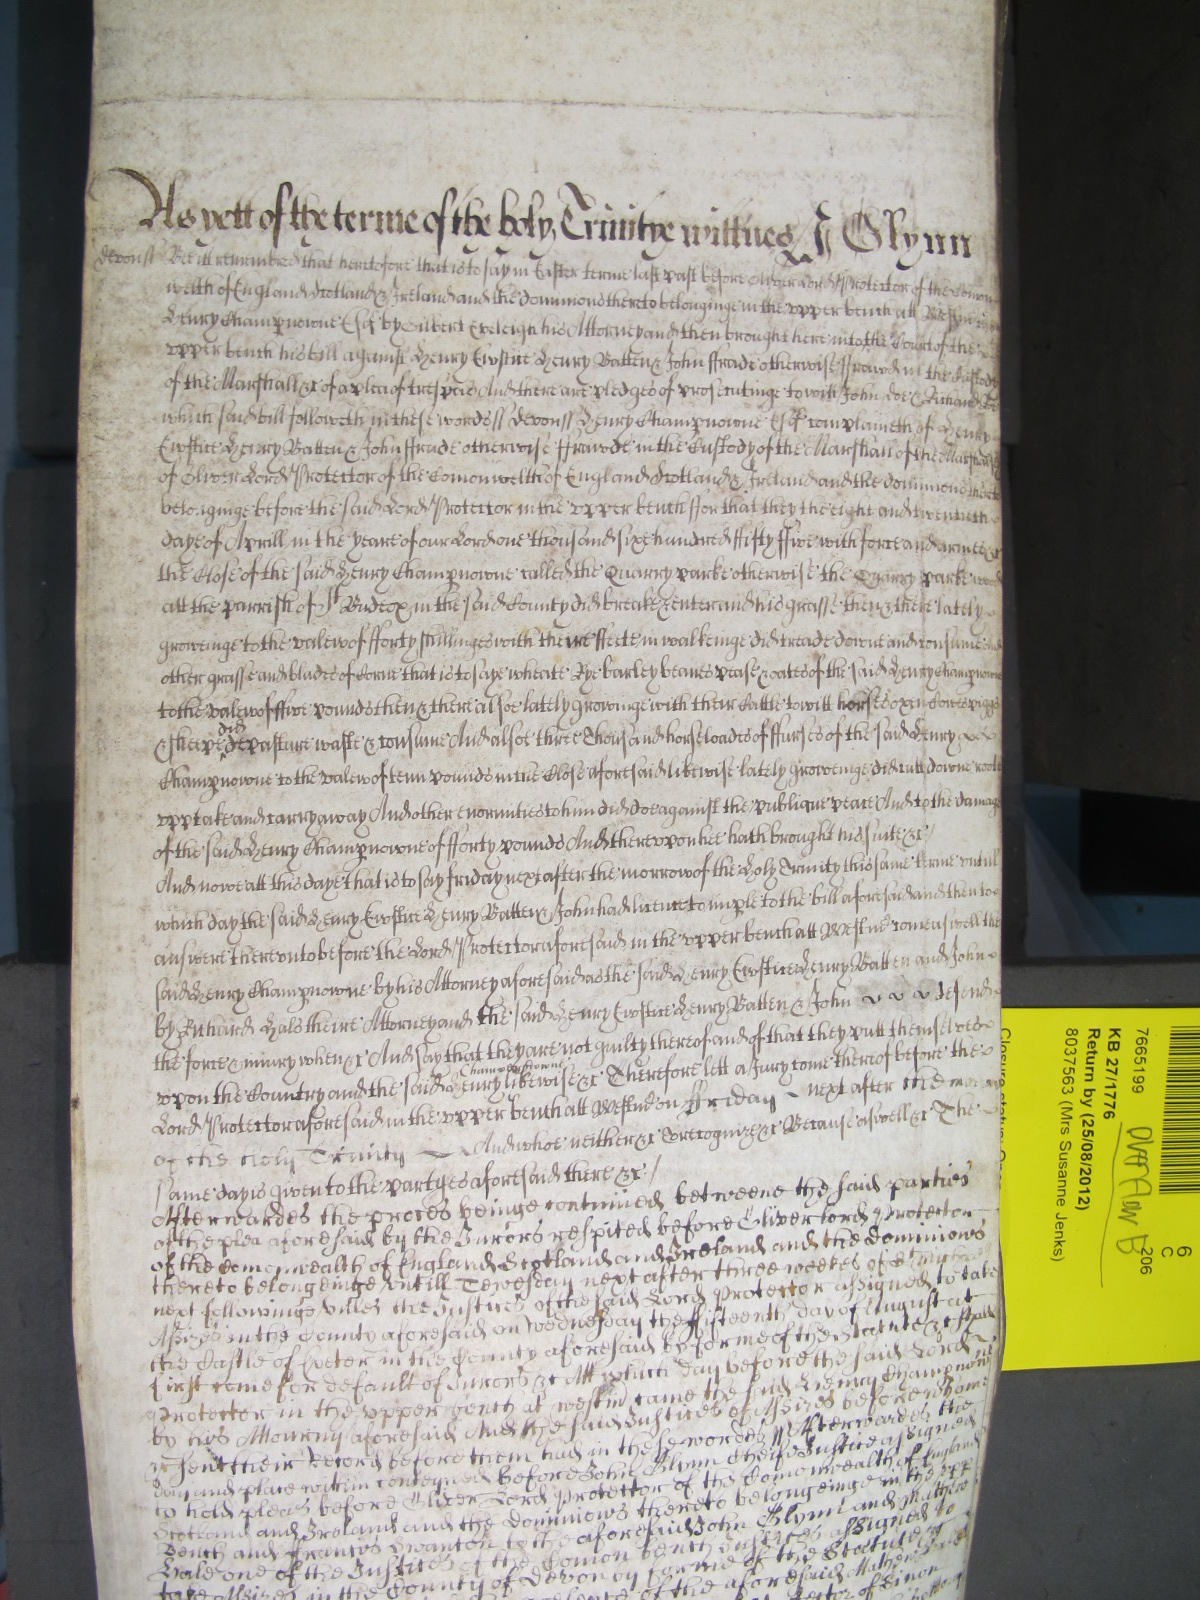 As yett of the terme of the holy Trinitye wittnes J Glynn
devonss Bee itt remembred that heretofore that is to say in Easter terme last past before Oliver Lord Protector of the Comon
welth of England Scotland & Ireland and the dominions thereto belonginge in the upper bench att Westm
Henry Champnowne Esqr by Gilbert Eveleigh his Attorney and then brought here into the Court of the
upper bench his bill against Henry Ewstice Henry Batten & John ffrade otherwise ffrawde in the Custody
of the Marshall &c of a plea of trespas And there are pledges of prosecutinge to witt John doe & Richard Roe
which said bill followeth in these words ss devon ss Henry Champnowne Esqr complaineth of Henry
Ewstice Henry Batten & John ffrade otherwise ffrawde in the Custody of the Marshall of the Marshalsey
of Oliver Lord Protector of the Comonwelth of England Scotland & Ireland and the dominions thereto
belonginge before the said Lord Protector in the upper bench ffor that they the eight and twentieth
daye of Aprill in the yeare of our Lord one thousand sixe hundred ffifty ffive with force and armes &c
the Close of the said Henry Champnowne called the Quarry parke otherwise the Quarry parke wood
att the parrish of St Budeox in the said County did breake & enter and his grasse then & there lately
groweinge to the valew of fforty shillinges with theire ffeete in walkeinge did treade downe and consume and
other grasse and blades of Corne that is to saye wheate Rye barley beanes pease & oates of the said Henry Champnowne
to the valew of ffive pounds then & there alsoe lately growinge with their Cattle to witt horses oxen Cowes piggs
& sheepe did depasture waste & consume And alsoe three thousand horse loades of ffurses of the said Henry
Champnowne to the valew of tenn pounds in the Close aforesaid likewise lately groweinge did cutt downe roote
upp take and carry away And other enormities to him did doe against the publique peace And to the damage
of the said Henry Champnowne of fforty pounds And thereupon hee hath brought his suite &c
And nowe att this daye that is to say friday next after the morrow of the Holy Trinity this same terme untill
which day the said Henry Ewstice Henry Batten & John had licence to imple to the bill aforesaid and then to
answere thereunto before the Lord Protector aforesaid in the upper bench att Westmr come aswell the
said Henry Champnowne by his Attorney aforesaid as the said Henry Ewstice Henry Batten and John
by Richard Hals theire Attorney and the said Henry Ewstice Henry Batten & John defend
the force & iniury when &c And say that they are not guilty thereof and of that they putt themselves
upon the Country and the said Henry Champnowne likewise &c Therefore lett a Jury come thereof before the
Lord Protector aforesaid in the upper bench att Westm on ffriday next after the morrow
of the holy Trinity And whoe neither &c To recognize &c Because aswell &c The
same day is given to the partyes aforesaid there &c
Afterwardes the proces beinge continued betweene the said parties
of the plea aforesaid by the Jurors respited before Oliver Lord Protector
of the Comonwealth of England Scotland and Ireland and the dominions
thereto belongeinge untill Tewesday next after three weekes of St Michaell
next followinge unles the Justices of the said Lord Protector assigned to take
Assizes in the County aforesaid on Wednesday the ffifteenth day of August at
the Castle of Exeter in the County aforesaid by forme of the Statute &c shall
first come for default of Jurors &c Att which day before the said Lord
Protector in the upper bench at westm came the said Henry Champnowne
by his Attorney aforesaid And the said Justices of Assizes before whome
&c sent their Record before them had in these wordes ss Afterwardes the
day and place within conteyned before John Glynn Cheife Justice assigned
to hold pleas before Oliver Lord Protector of the Comonwealth of England
Scotland and Ireland and the dominions thereto belongeinge in the upp
Bench and to the aforesaid John Glynn and Mathew
Hale one of the Justices of the Comon bench Justices assigned to
take Assizes in the County of Devon by forme of the Statute
of the aforesaid Mathew Hale
7665199
KB 27/1776
Return by (25/08/2012)
8037563 (Mrs Susanne Jenks)
6
C
206
Closure status: Open